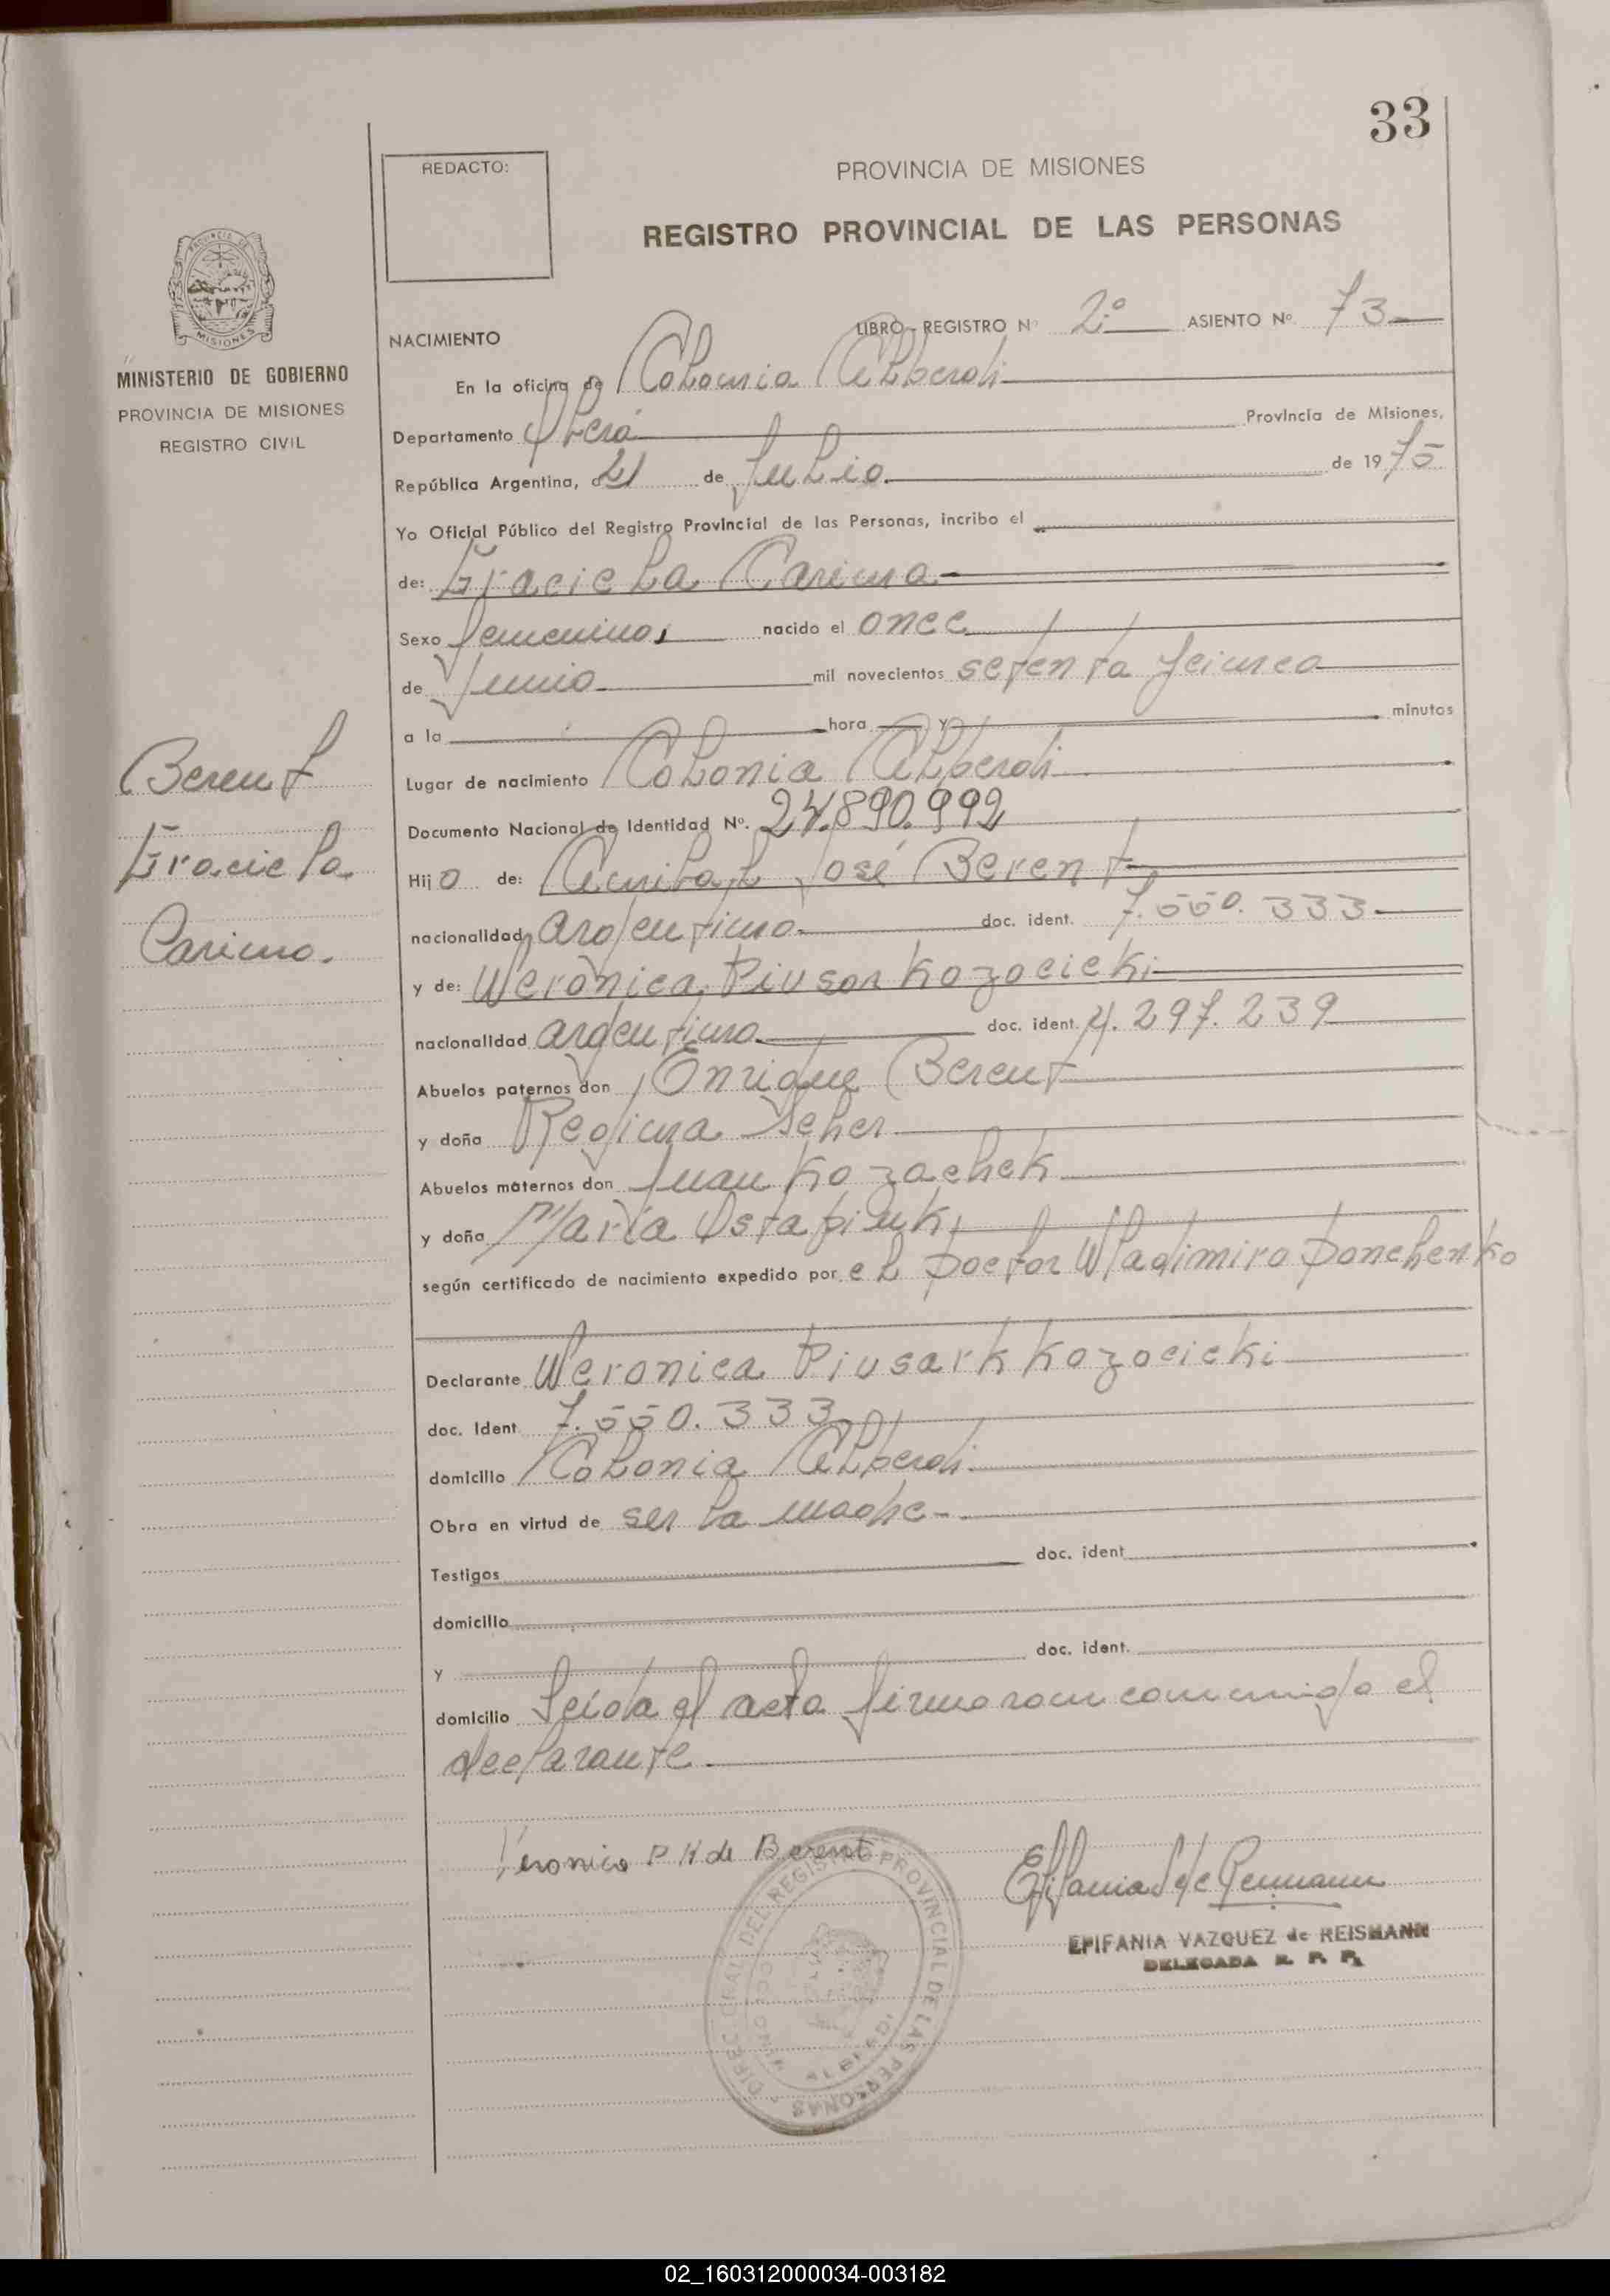 33
REDACTO:
PROVINCIA DE MISIONES
REGISTRO PROVINCIAL DE LAS PERSONAS
PROVINCIA DE
MISIONES
MINISTERIO DE GOBIERNO
PROVINCIA DE MISIONES
REGISTRO CIVIL
LIBRO - REGISTRO Nº 2º ASIENTO Nº 73
NACIMIENTO
En la oficina de Colonia Alberdi
Departamento Oberá Provincia de Misiones,
República Argentina, 21 de Julio de 1975
Yo Oficial Público del Registro Provincial de las Personas, incribo el
de: Graciela Carina
Sexo femenino, nacido el once
de Junio mil novecientos setenta y cinco
a la hora y minutos
Lugar de nacimiento Colonia Alberdi
Berent
Graciela
Carina.
Documento Nacional de Identidad Nº. 24.890.992
Hijo de: Anibal José Berent
nacionalidad argentino doc. ident. 7.550.333
y de: Weronica Kozocicki
nacionalidad argentina doc. ident. 4.297.239
Abuelos paternos don Enrique Berent
y doña Regina
Abuelos maternos don Juan Kozachek
y doña Maria Ostapiuk
según certificado de nacimiento expedido por el Doctor Wladimiro Donchenko
Declarante Weronica Piusark Kozocicki
doc. Ident 7.550.333
domicilio Colonia Alberdi
Obra en virtud de ser la madre
Testigos doc. ident
domicilio
y doc. ident.
domicilio Leida el acta firmaron conmigo el
declarante
Veronica P K de Berent
EPIFANIA VAZQUEZ de REISMANN
DELEGADA R. P. P.
DIREC. GRAL. DEL REGISTRO PROVINCIAL DE LAS PERSONAS
ALBERDI
02_160312000034-003182